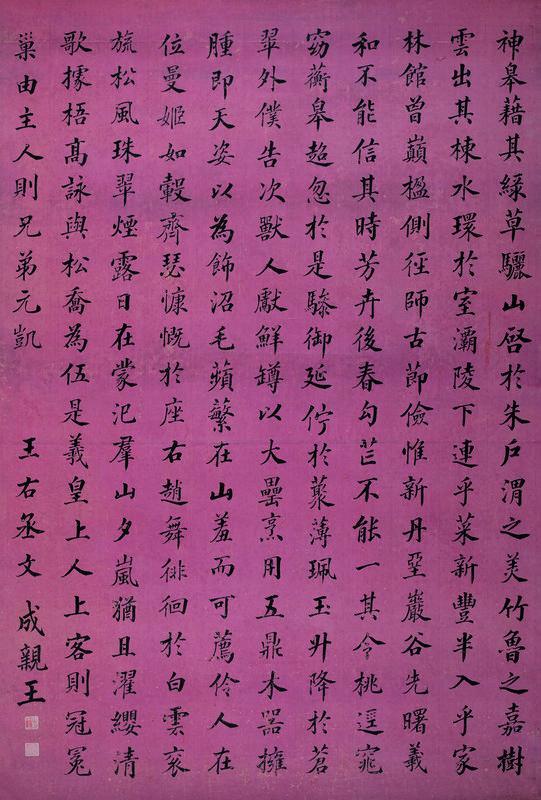 神皋藉其綠草驪山啓於朱戶渭之美竹魯之嘉樹
雲出其棟水環於室灞陵下連乎菜新豐半入乎家
林館曾巔楹側徑師古節儉惟新丹堊巖谷先曙羲
和不能信其時芳卉後春勾芒不能一其令桃逕窕
窈蘅皋超忽於是驂御延佇於叢薄珮玉升降於蒼
翠外僕告次獸人獻鮮罇以大罍烹用五鼎木器擁
腫即天姿以為飾沼毛蘋蘩在山羞而可薦伶人在
位曼姬如轂齊瑟慷慨於座右趙舞徘徊於白雲袞
旒松風珠翠煙露日在蒙汜羣山夕嵐猶且濯纓清
歌據梧高詠與松喬為伍是羲皇上人上客則冠冕
巢由主人則兄弟元凱 王右丞文 成親王